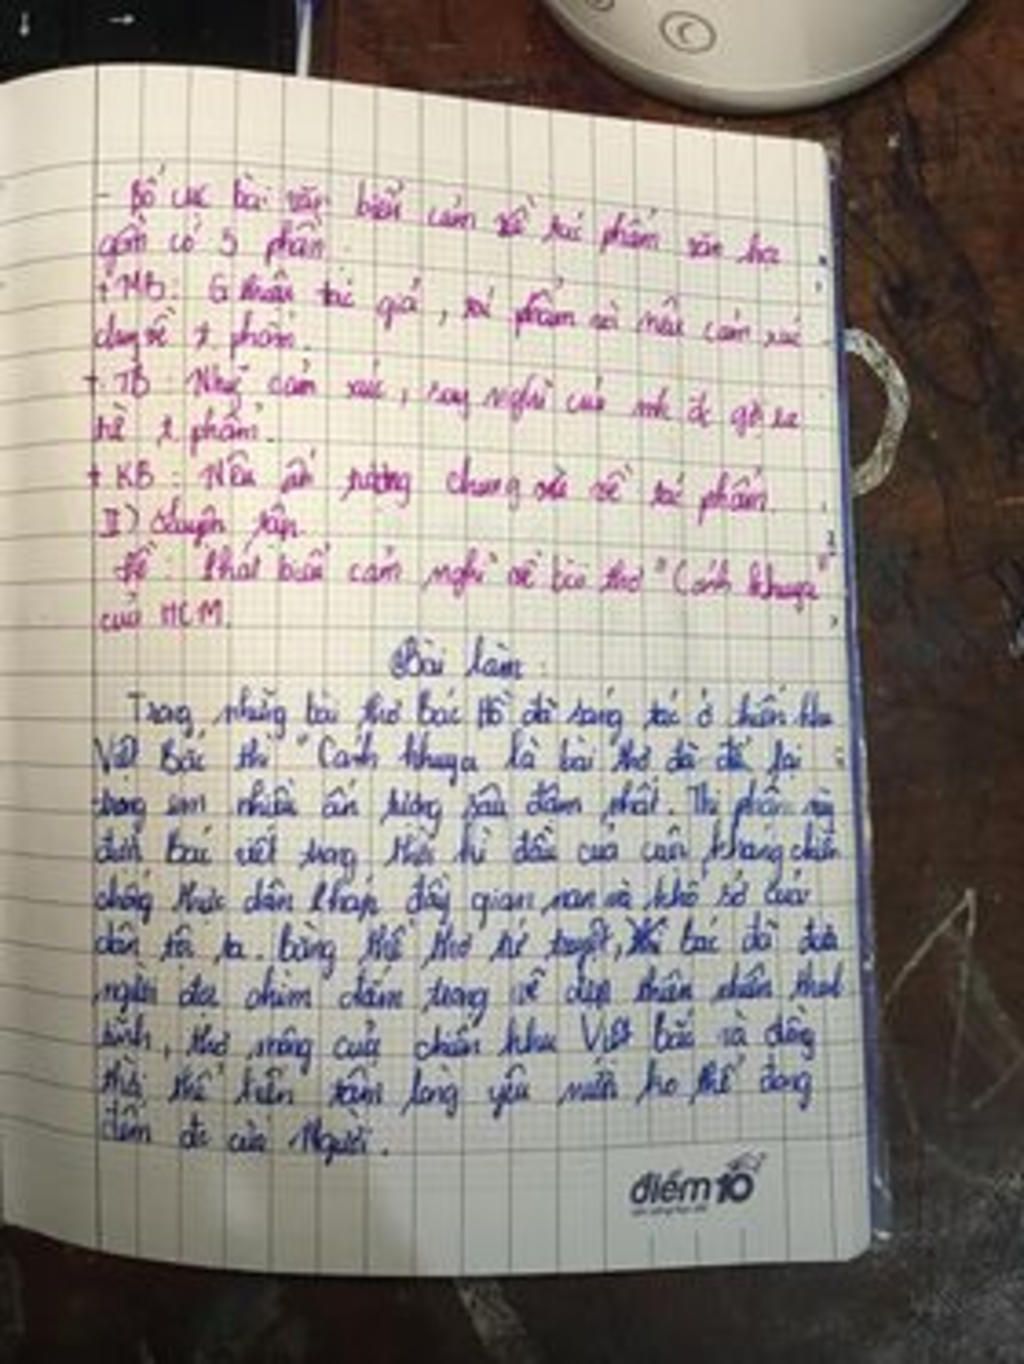 - Bố cục bài văn biểu cảm về tác phẩm văn học
gồm có 3 phần.
+ MB: tác giả, tác phẩm và nêu cảm xúc
chung về t phẩm.
+ TB: Nhg~ cảm xúc, suy nghĩ của mh đc gợi ra
về t phẩm.
+ KB: Nêu ấn tượng chung về tác phẩm.
II) Luyện tập.
Đề: Phát biểu cảm nghĩ về bài thơ "Cảnh khuya"
của HCM.
Bài làm
Trong những bài thơ Bác Hồ đã sáng tác ở chiến khu
Việt Bắc thì "Cảnh khuya là bài thơ đã để lại
trong em nhiều ấn tượng sâu đậm nhất. Thi phẩm này
được Bác viết trong thời kì đầu của cuộc kháng chiến
chống thực dân Pháp đầy gian nan và khổ sở của
dân tộc ta. Bằng thể thơ tứ tuyệt, Bác đã đưa
người đọc chìm đắm trong vẻ đẹp thiên nhiên thanh
bình, thơ mộng của chiến khu Việt Bắc và đồng
thời thể hiện tấm lòng yêu nước ko thể đong
đếm đc của Người.
điểm 10